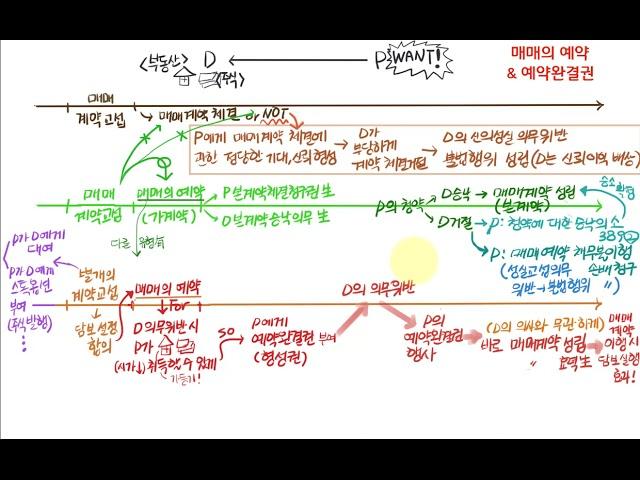 매매의 예약
& 예약완결권
<부동산> D
(주식)
P WANT!
매매
계약교섭
매매계약 체결 or NOT
P에게 매매계약 체결에
관한 정당한 기대, 신뢰 형성
D가
부당하게
계약 체결거절
D의 신의성실 의무위반
불법행위 성립 (D는 신뢰이익 배상)
매매
계약교섭
매매의 예약
(가계약)
P 본계약체결청구권 生
D 본계약 승낙의무 生
P의 청약
D승낙
매매계약 성립
(본계약)
D거절
P: 청약에 대한 승낙의 소
389②
승소확정
P: 매매예약 채무불이행
(성실교섭의무 손배청구
위반→불법행위 〃)
다른 유형
P가 D에게
대여
P가 D에게
스톡옵션
부여
(주식발행)
별개의
계약교섭
담보설정
합의
매매의 예약
For
D 의무위반 시
P가
(시가↓) 취득할 수 있게
만들기!
so
P에게
예약완결권 부여
(형성권)
D의 의무위반
P의
예약완결권
행사
(D의 의사와 무관하게)
바로 매매계약 성립
〃 효력 生
매매
계약
이행 시
담보실행
효과!